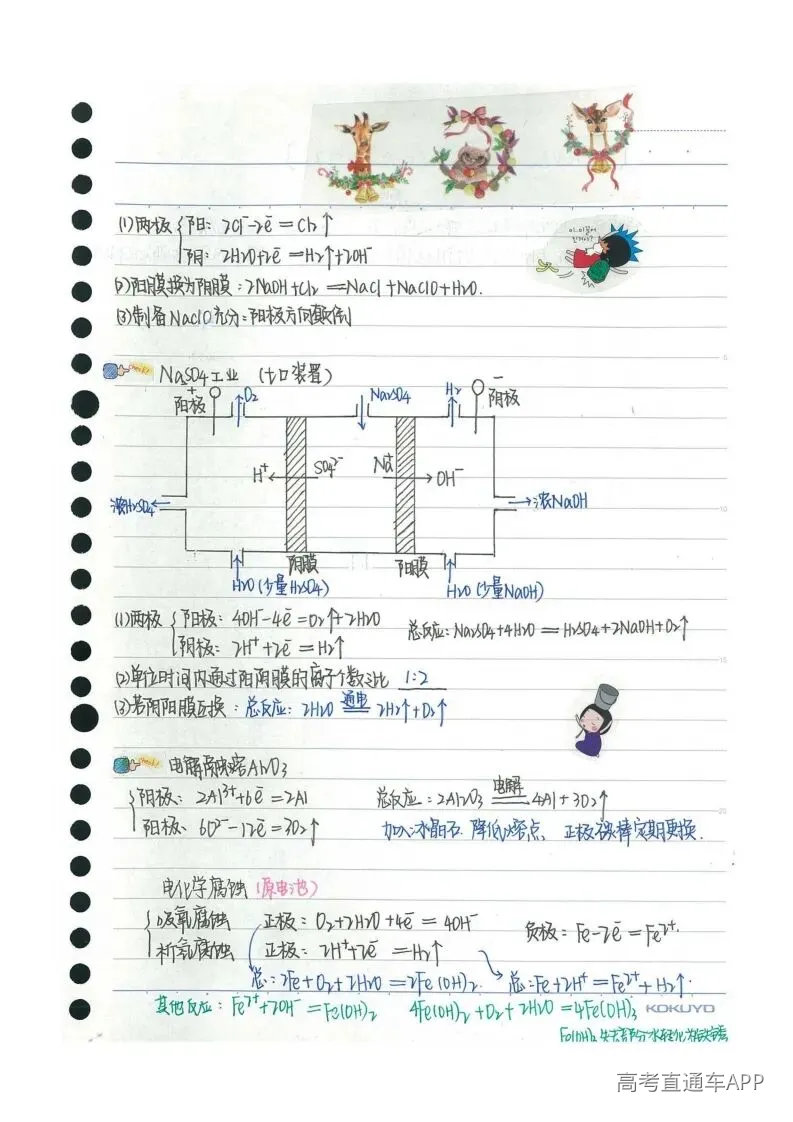 (1)两极 阳: 2Cl⁻-2e⁻=Cl₂↑
阴: 2H₂O+2e⁻=H₂↑+2OH⁻
(2)阳膜换为阴膜:2NaOH+Cl₂=NaCl+NaClO+H₂O.
(3)制备NaClO充分:阴阳极方向颠倒
check! Na₂SO₄工业 (七口装置)
+ 阳极 O₂ Na₂SO₄ H₂ - 阴极
H⁺ SO₄²⁻ Na⁺ OH⁻
浓H₂SO₄ 浓NaOH
阴膜 阳膜
H₂O(少量H₂SO₄) H₂O(少量NaOH)
(1)两极 阳极: 4OH⁻-4e⁻=O₂↑+2H₂O 总反应:Na₂SO₄+4H₂O=H₂SO₄+2NaOH+O₂↑
阴极: 2H⁺+2e⁻=H₂↑
(2)单位时间内通过阳阴膜的离子个数之比 1:2
(3)若阴阳膜互换: 总反应: 2H₂O 通电 2H₂↑+O₂↑
check! 电解熔融Al₂O₃
阴极: 2Al³⁺+6e⁻=2Al 总反应: 2Al₂O₃ 电解 4Al+3O₂↑
阳极: 6O²⁻-12e⁻=3O₂↑ 加入冰晶石 降低熔点 正极碳棒定期更换.
电化学腐蚀(原电池)
吸氧腐蚀 正极: O₂+2H₂O+4e⁻=4OH⁻ 负极: Fe-2e⁻=Fe²⁺.
析氢腐蚀 正极: 2H⁺+2e⁻=H₂↑
总: 2Fe+O₂+2H₂O=2Fe(OH)₂ 总: Fe+2H⁺=Fe²⁺+H₂↑.
其他反应: Fe²⁺+2OH⁻=Fe(OH)₂ 4Fe(OH)₂+O₂+2H₂O=4Fe(OH)₃ KOKUYO
失去部分水转化为铁锈
高考直通车APP